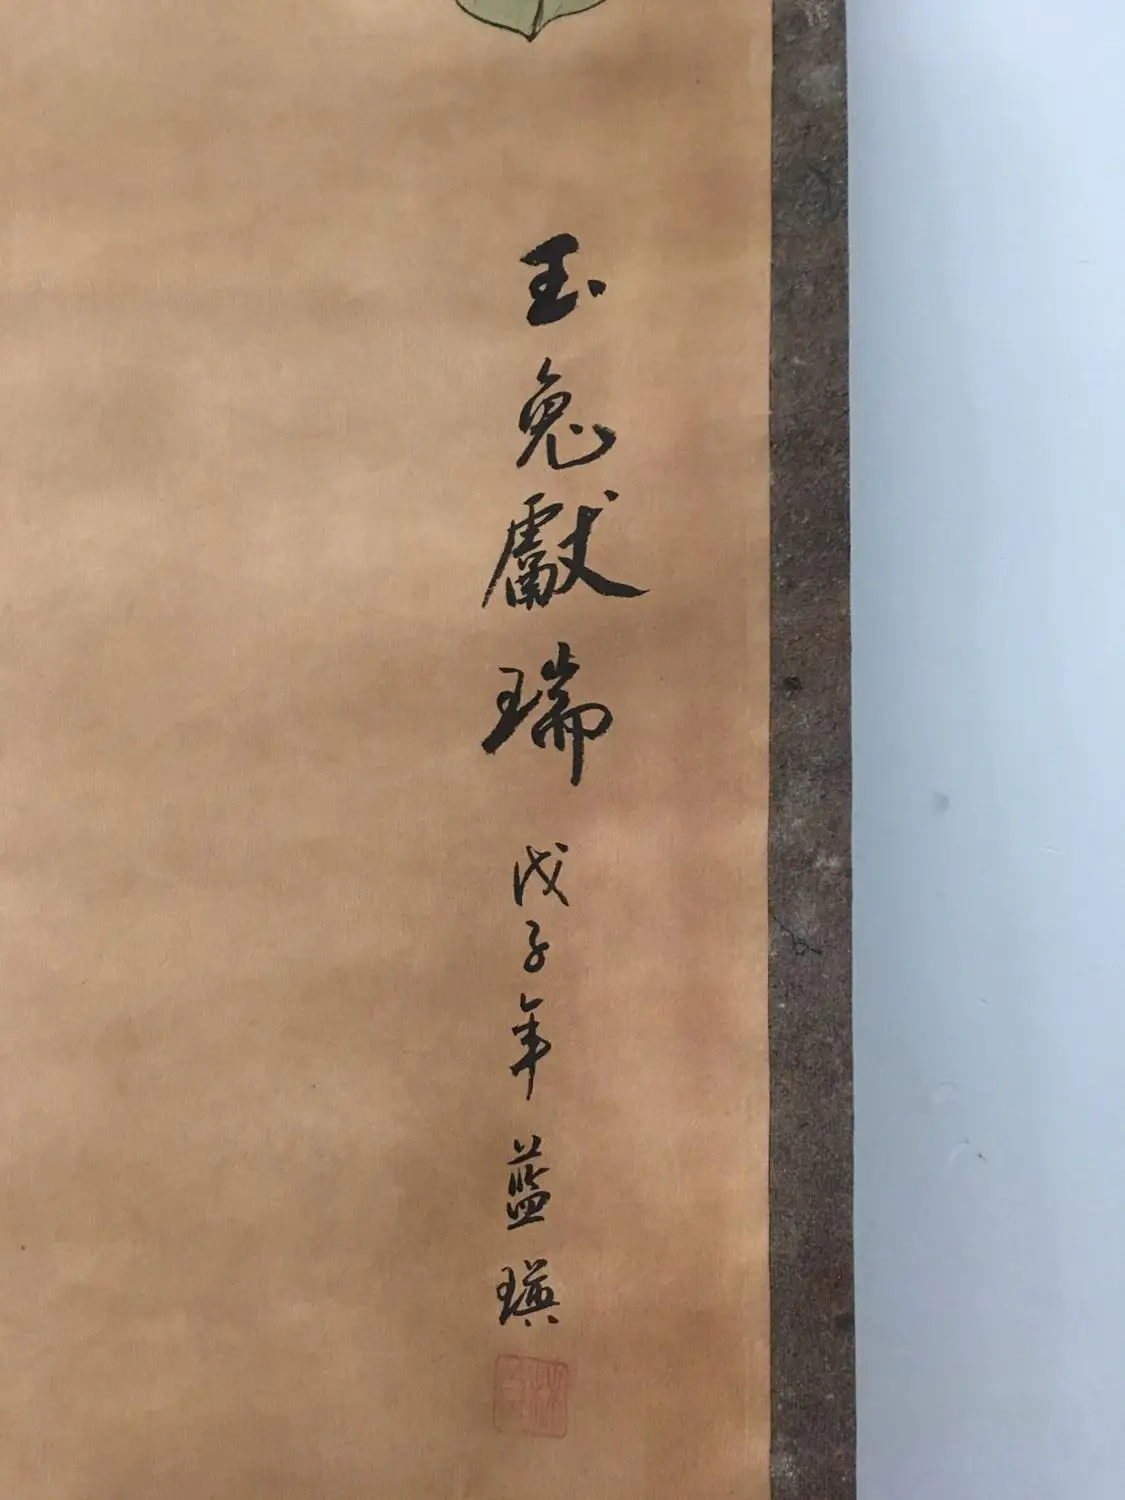 玉兔獻瑞 戊子年 藍瑛